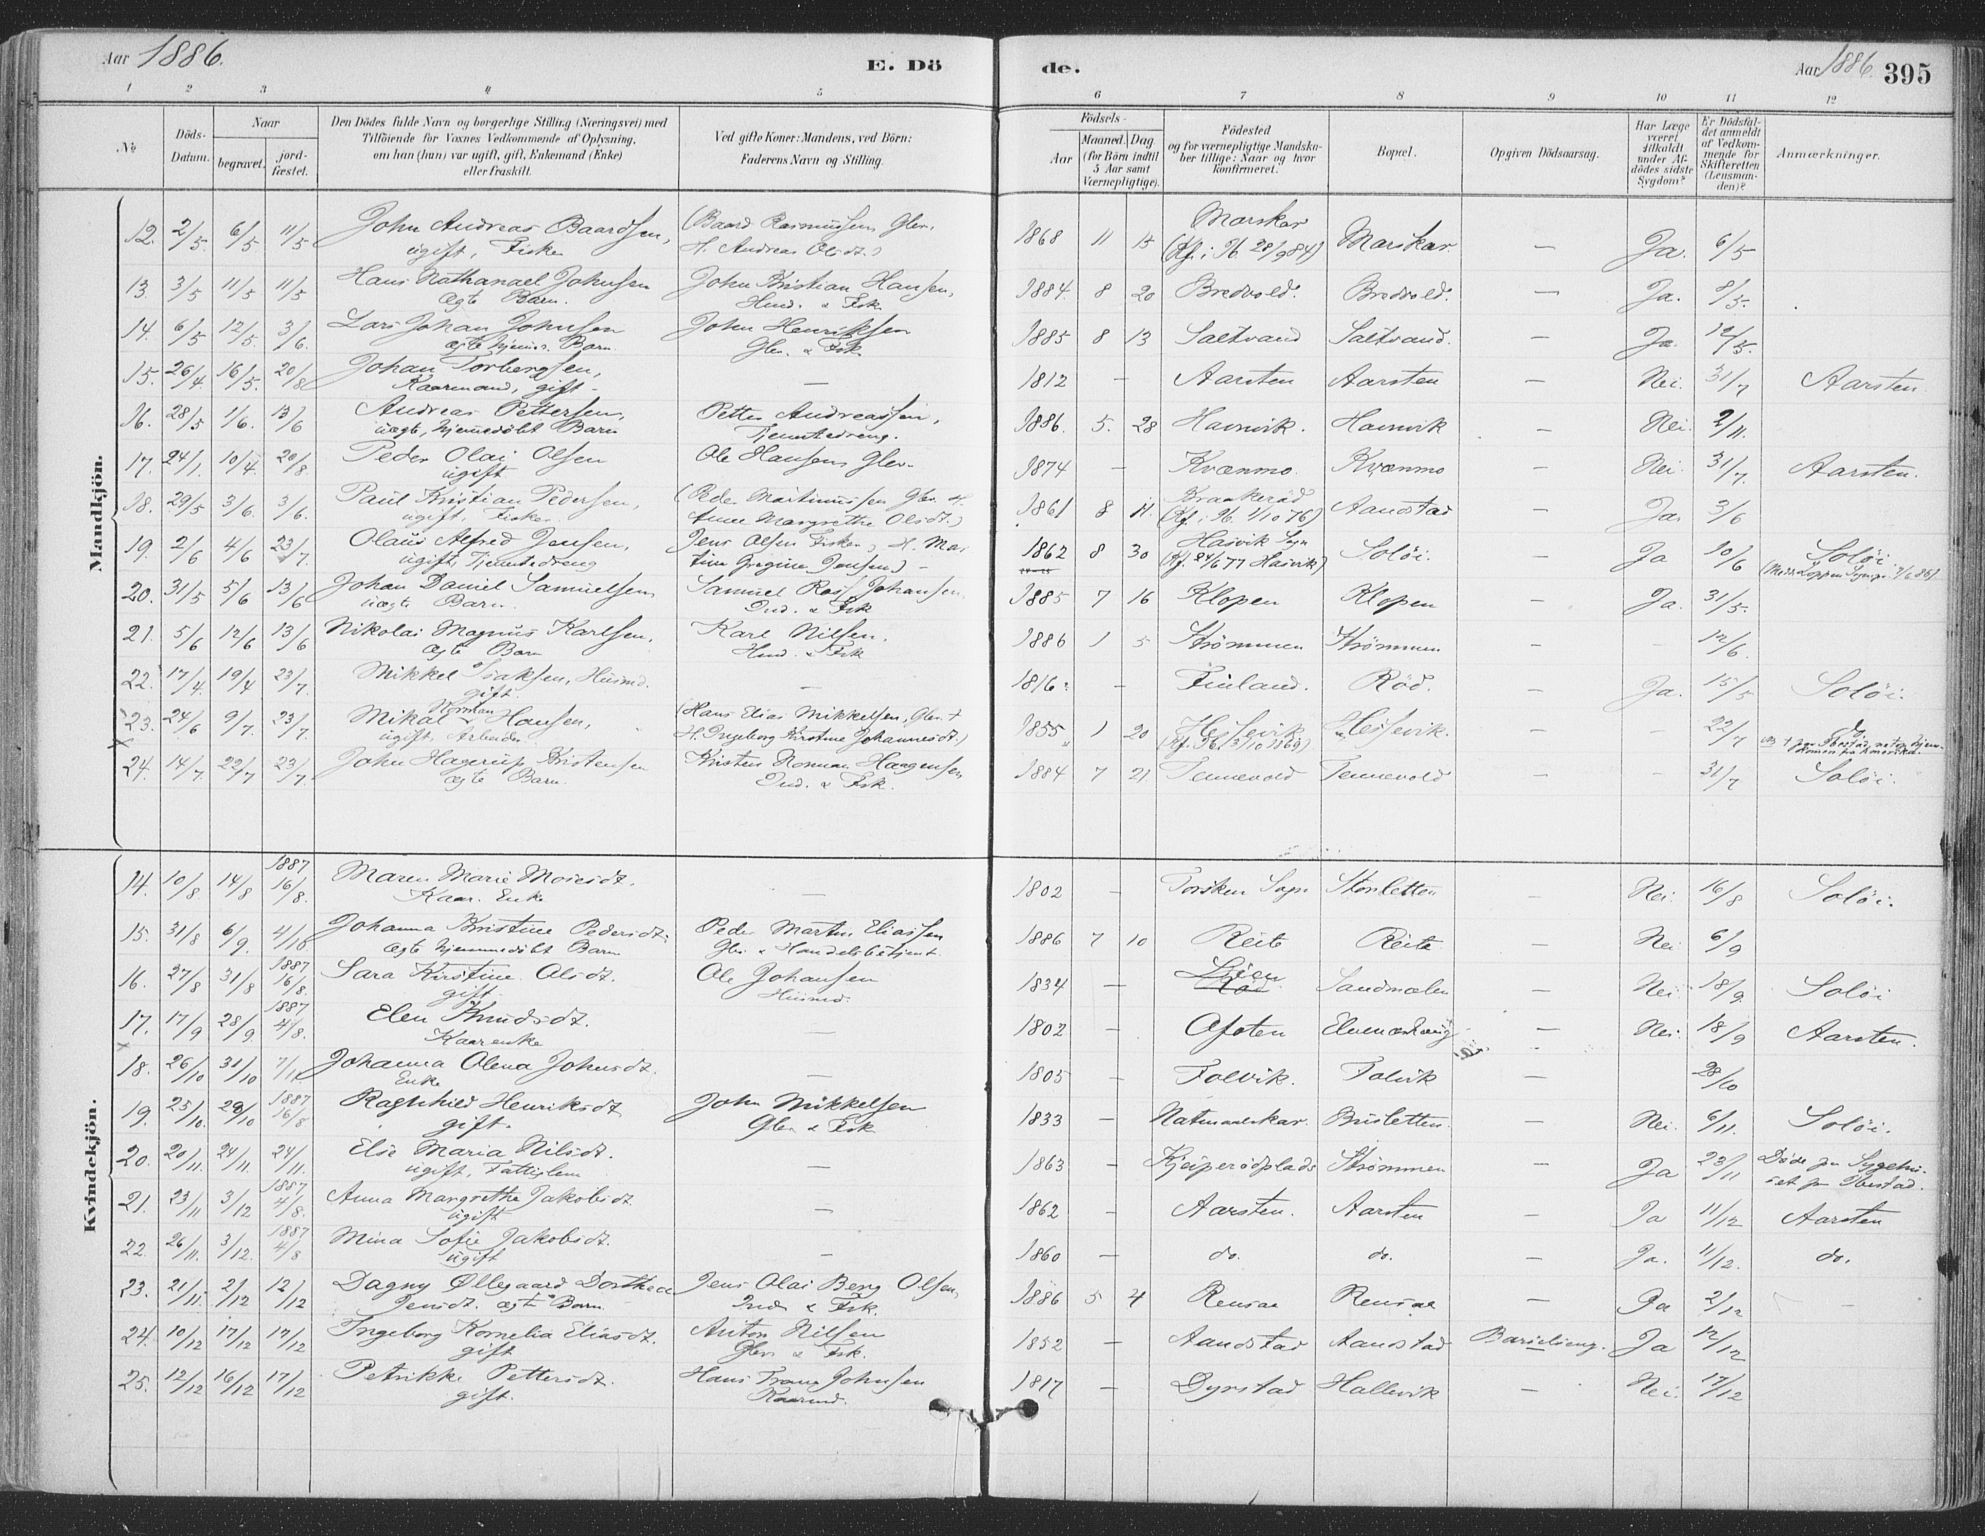 Aar 1886.
E. Döde.
Aar 1886. 395
1 2 3 4 5 6 7 8 9 10 11 12
№
Döds-Datum.
Naar
begravet.
jord-fæstet.
Den Dödes fulde Navn og borgerlige Stilling (Næringsvei) med
Tilföiende for Voxnes Vedkommende af Oplysning,
om han (hun) var ugift, gift, Enkemand (Enke)
eller fraskilt.
Ved gifte Koner: Mandens, ved Börn:
Faderens Navn og Stilling.
Födsels-
Aar
Maaned. Dag
(for Börn indtil
5 Aar samt
Værnepligtige).
Födested
og for værnepligtige Mandska-
ber tillige: Naar og hvor
konfirmeret.
Bopæl.
Opgiven Dödsaarsag.
Har Læge
været
tilkaldt
under Af-
dödes sidste
Sygdom?
Er Dödsfal-
det anmeldt
af Vedkom-
mende for
Skifteretten
(Lensman-
den)?
Anmærkninger.
Mandkjön.
12. 2/5. 6/5 11/5 John Andreas Baardsen, (Baard Rasmussen Glv. 1868 11 15 Marskar Marskar. — Ja. 6/5
ugift, Fisker H. Andrea Olsdt.) (Kf. i Ib. 28/9 84)
13 3/5 11/5 11/5 Hans Nathanael Johnsen John Kristian Hansen, 1884. 8 20 Bredvold. Bredvold. — Ja. 8/5.
ægte Barn. Husd. & Fisk
14. 6/5 12/5. 3/6. Lars Johan Johnsen John Henriksen 1885 8 13 Saltvand Saltvand. — Ja. 12/5.
ægte hjemmed. Barn Glv. & Fsk.
15. 26/4 16/5. 20/8 Johan Torbergsen, — 1812 — Aarsten Aarsten — Nei. 31/7 Aarsten.
Kaarmand, gift.
16. 28/5 1/6. 13/6 Andreas Pettersen, Petter Andreassen, 1886. 5. 28 Havnvik. Havnvik — Nei. 2/11.
uægte, hjemmedöbt Barn Tjenestedreng.
17. 24/1. 10/4. 20/8 Peder Olai Olsen Ole Hansen Glv. 1874 — Kvænmo. Kvænmo — Nei. 31/7. Aarsten.
ugift
18. 29/5 3/6. 3/6. Paul Kristian Pedersen, (Peder Martinussen Glv. H. 1861 8 11. Kraakeröd Aandstad — Ja. 3/6
ugift, Fisker Anne Margrethe Olsdt.) (Kf. i Ib. 1/10 76)
19. 2/6 4/6 23/7 Olaus Alfred Jensen, Jens Olsen Fisker, H. Mar 1862 8 30 Hasvik Sogn Soløi. — Ja 10/6 Soløi
ugift, Tjenestedreng tine Gregine Jensen) (Kf. 24/6 77 Hasvik)
20. 31/5 5/6 13/6 Johan Daniel Samuelsen Samuel Ross Johansen. 1885 7 16 Klopen Klopen — Ja. 31/5.
uægte Barn. Ind. & Fsk
21. 5/6 12/6 13/6 Nikolai Magnus Karlsen, Karl Nilsen. 1886 1 5 Strömmen Strömmen — — 12/6.
ægte Barn Husd. & Fsk
22. 17/4. 19/4 23/7. Mikkel Isaksen, Husmd. — 1816. — Finland. Röd. — Ja. 15/5 Soløi.
gift
23. 24/6 9/7. 23/7 Mikal Norman Hansen, (Hans Elias Mikkelsen, Glv. + 1855 1 20 Hessevik Hessevik. — — 22/7 do.
ugift, Arbeider H. Ingeborg Kirstine Johannesdt.) (Kf. Ib. 3/10 1869)
24. 14/7. 22/7 23/7. John Hagerup Kristensen Kristen Norman Haagensen 1884 7 21 Tennevold Tennevold — — 31/7 Soløi.
ægte Barn. Ind. & Fsk.
Kvindekjön.
14. 10/8 14/8 1887 16/8. Maren Marie Moiesdt. — 1802 — Torsken Sogn Storsletten — Nei 16/8 Soløi.
Kaar. Enke
15. 31/8 6/9. 4/10 Johanna Kristine Pedersdt. Peder Martin Eliassen 1886 7 10 Reite Reite — Nei. 6/9
ægte hjemmedöbt Barn Glv. & Handelsbetjent.
16. 27/8 31/8 1887 16/8. Sara Kirstine Olsdt. Ole Johansen 1834 — Sandmælen — Nei 18/9. Soløi
gift. Husmd.
17. 17/9 28/9 1887 4/8. Elen Knudsdt. — 1802 — Ofoten — Nei. 18/9 Aarsten.
Kaarenke
18. 26/10 31/10 7/11 Johanna Olena Johnsdt. — 1805 — Folvik. Folvik — 28/10
Enke
19. 25/10. 29/10 1887 16/8 Ragnhild Henriksdt John Mikkelsen 1833 — Brusletten. — Nei. 6/11. Soløi.
gift. Glv. & Fsk
20. 20/11. 24/11. 24/11. Else Maria Nilsdt. — 1863 — Kjeiperödplads Strömmen — Ja 23/11 Døde paa Sygehu-
ugift, Fattiglem set paa Ibestad.
21. 23/11 3/12 1887 4/8. Anna Margrethe Jakobsdt. — 1862 — Aarsten. Aarsten — Ja 11/12 Aarsten
ugift
22. 26/11. 3/12. 1887 4/8 Mina Sofie Jakobsdt. — 1860 — do. do. — Ja. 11/12. do.
ugift
23. 21/11. 2/12 12/12 Dagny Øllegaard Dorthea Jens Olai Berg Olsen, 1886 5 4 Rensaa Rensaa — Ja 2/12 —
Jensdt. ægte Barn Ind. & Fsk.
24. 10/12 17/12 17/12 Ingeborg Kornelia Eliasdt. Anton Nilsen 1852 — Aandstad Aandstad Barselseng. Ja 12/12
gift Glv. & Fsk.
25. 12/12 16/12 17/12 Petrikke Pettersdt. Hans Frans Johnsen 1817 — Dyrstad Hallevik — Nei. 17/12
gift. Kaarmd.